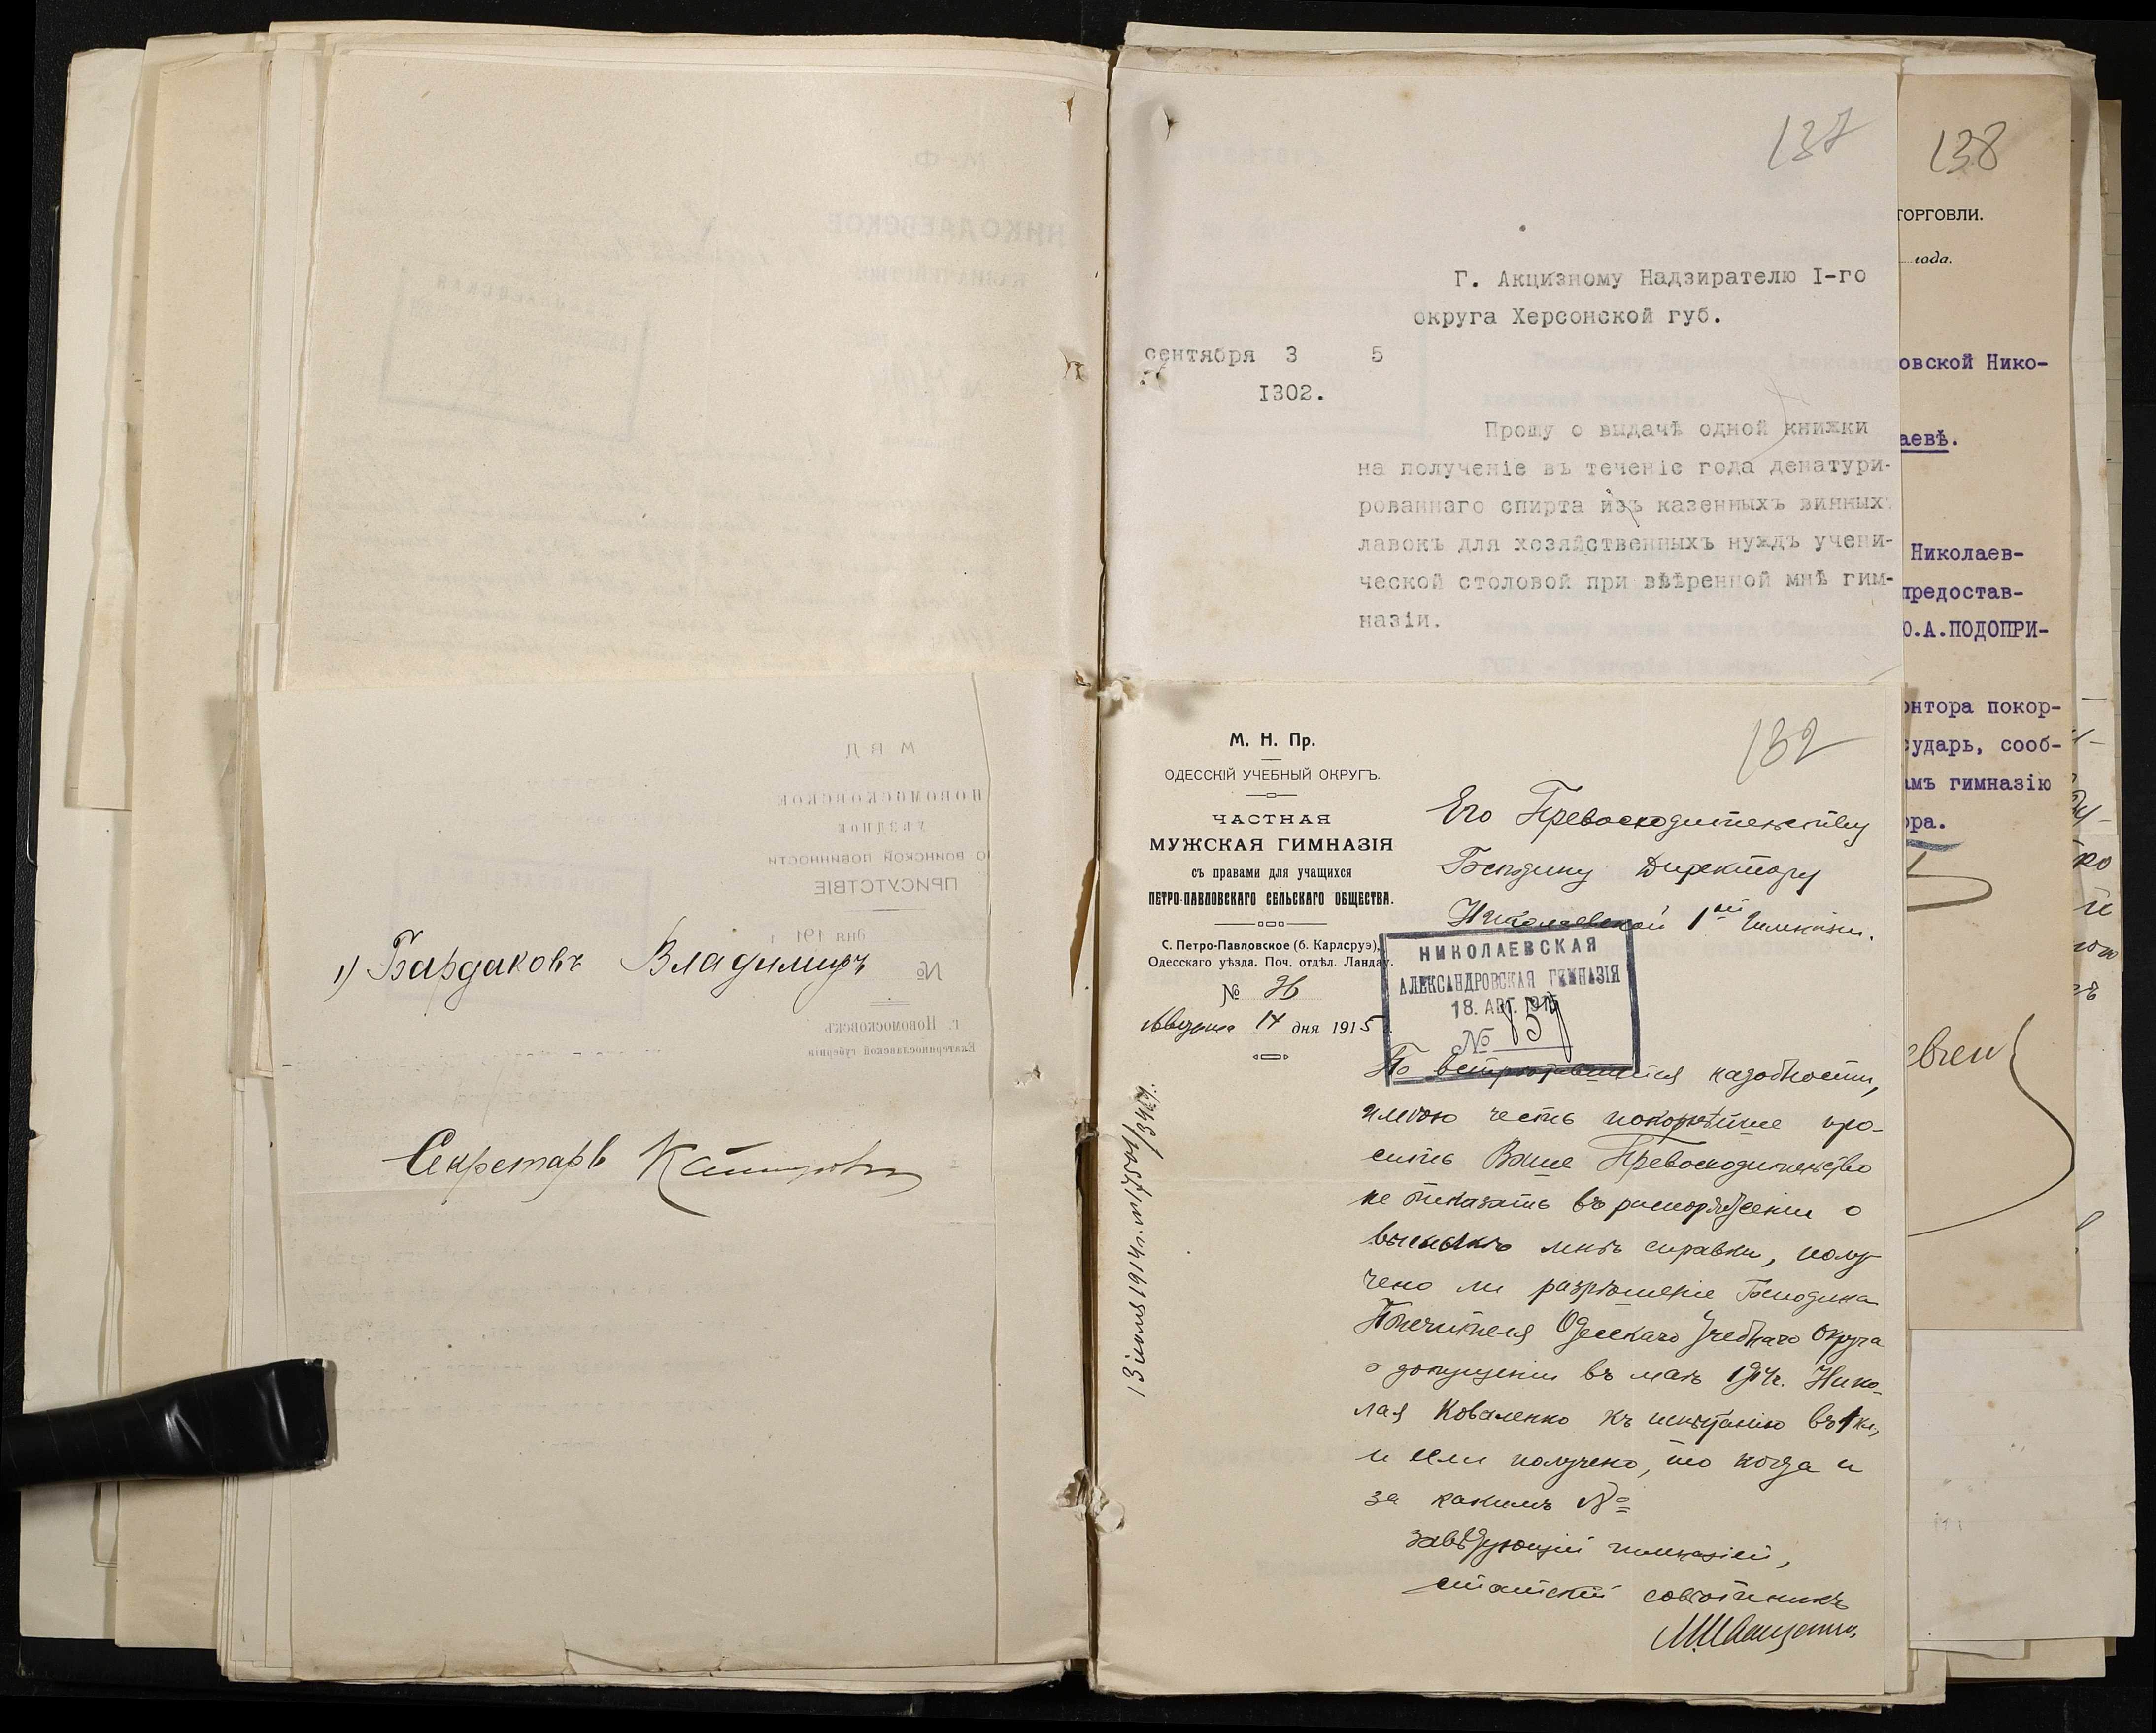 1) Бардаковъ Владимиръ
Секретарь
137
Г. Акцизному Надзирателю I-го
округа Херсонской губ.
сентября 3 5
I302.
Прошу о выдачѣ одной книжки
на полученіе въ теченіе года денатури-
рованнаго спирта изъ казенныхъ винныхъ
лавокъ для хозяйственныхъ нуждъ учени-
ческой столовой при ввѣренной мнѣ гим-
назіи.
132
М. Н. Пр.
ОДЕССКІЙ УЧЕБНЫЙ ОКРУГЪ.
ЧАСТНАЯ
МУЖСКАЯ ГИМНАЗІЯ
съ правами для учащихся
ПЕТРО-ПАВЛОВСКАГО СЕЛЬСКАГО ОБЩЕСТВА.
С. Петро-Павловское (б. Карлсруэ),
Одесскаго уѣзда. Поч. отдѣл. Ландау.
№ 26
Августа 14 дня 1915
Его Превосходительству
Господину Директору
Николаевской 1ой Гимназіи.
НИКОЛАЕВСКАЯ
АЛЕКСАНДРОВСКАЯ ГИМНАЗІЯ
18. АВГ. 1915
№
По встрѣтившейся надобности,
имѣю честь покорнѣйше про-
сить Ваше Превосходительство
не отказать въ распоряженіи о
высылкѣ мнѣ справки, полу-
чено ли разрѣшеніе Господина
Попечителя Одесскаго Учебнаго Округа
о допущеніи въ маѣ 1914г. Нико-
лая Коваленко къ испытанію въ 1 кл.,
и если получено, то когда и
за какимъ №
завѣдующій гимназіей,
статскій совѣтникъ
13 іюля 1914г.
138
ТОРГОВЛИ.
года.
овской Нико-
аевѣ.
Николаев-
предостав-
Ю.А.ПОДОПРИ-
онтора покор-
сударь, сооб-
амъ гимназію
ора.